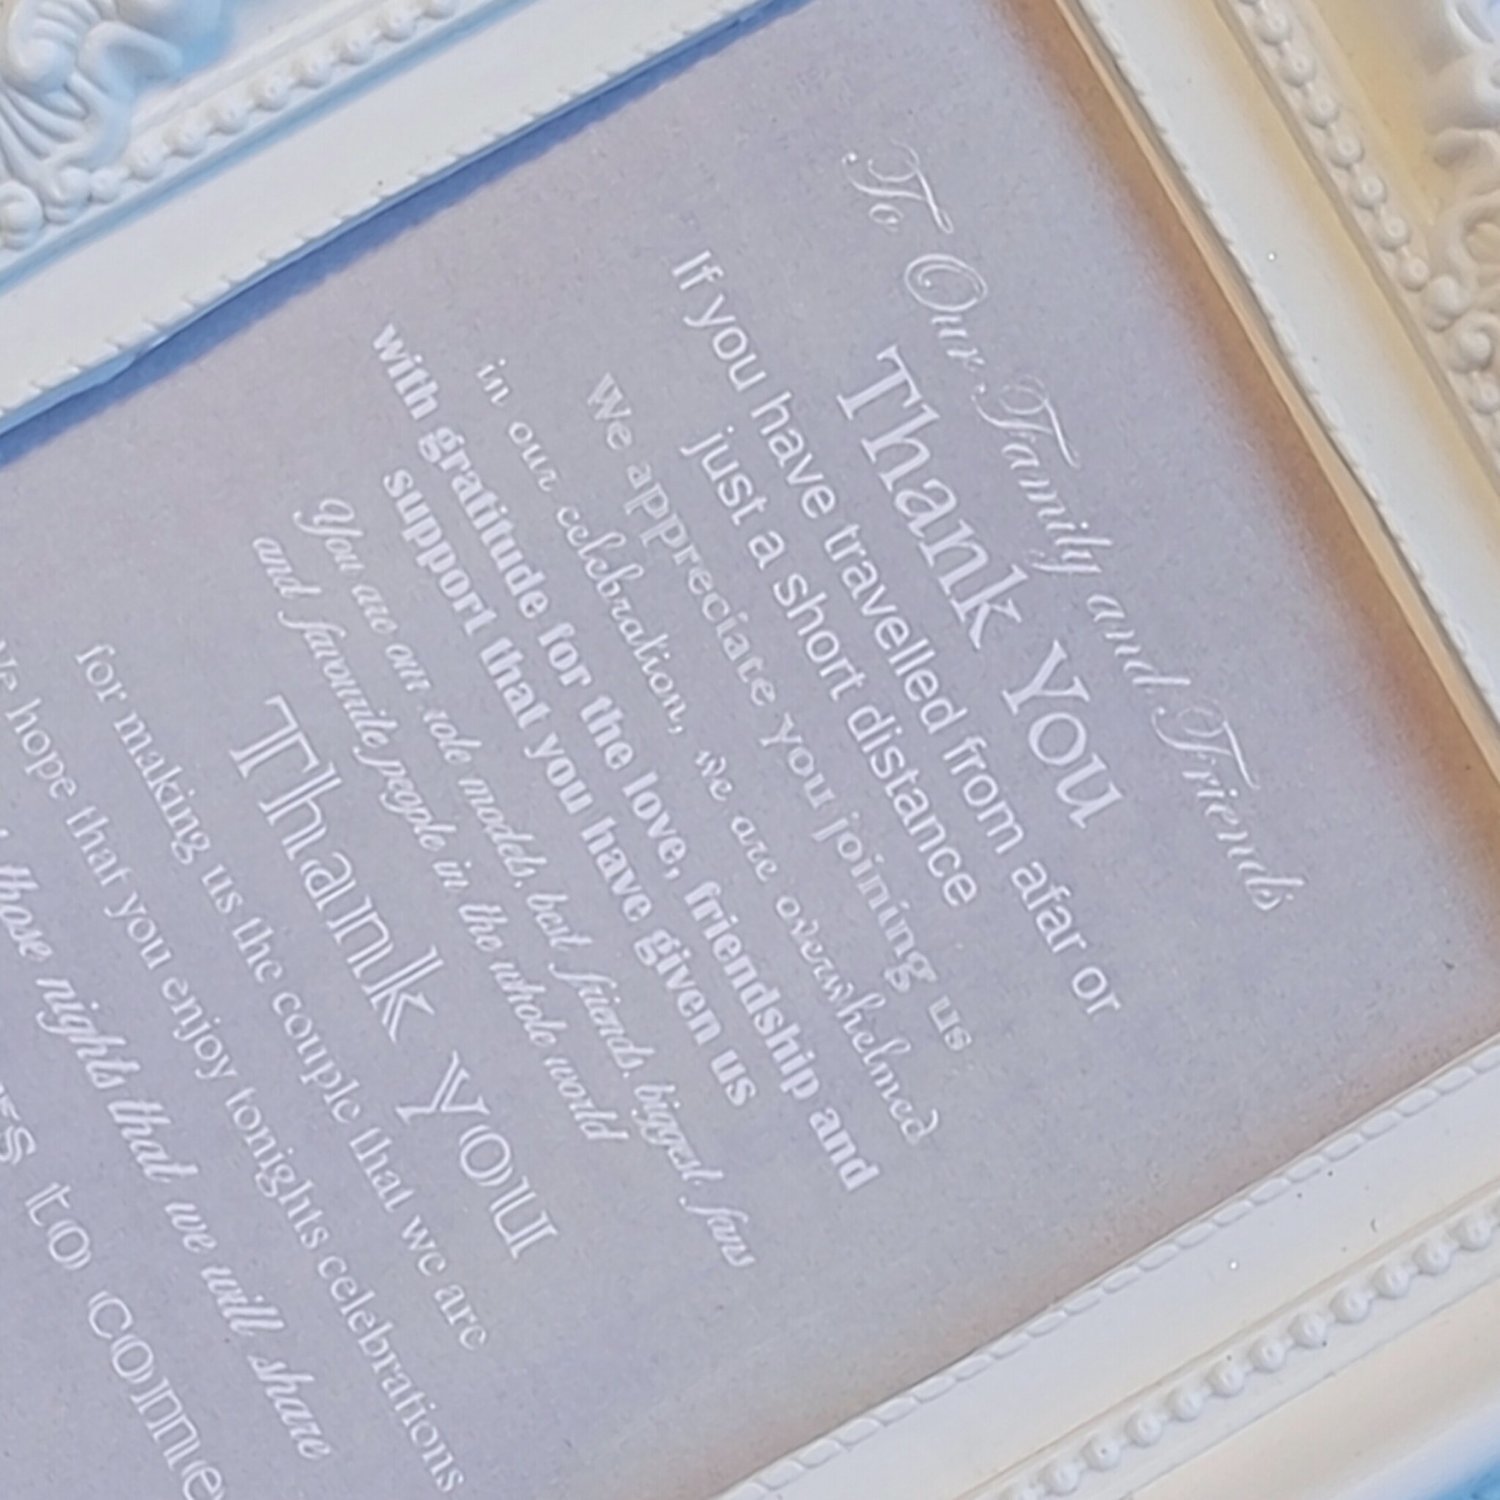 To Our Family and Friends
Thank You
If you have travelled from afar or
just a short distance
We appreciate you joining us
in our celebration, we are overwhelmed
with gratitude for the love, friendship and
support that you have given us
You are our role models, best friends, biggest fans
and favourite people in the whole world
Thank You
for making us the couple that we are
We hope that you enjoy tonights celebrations
those nights that we will share
to come